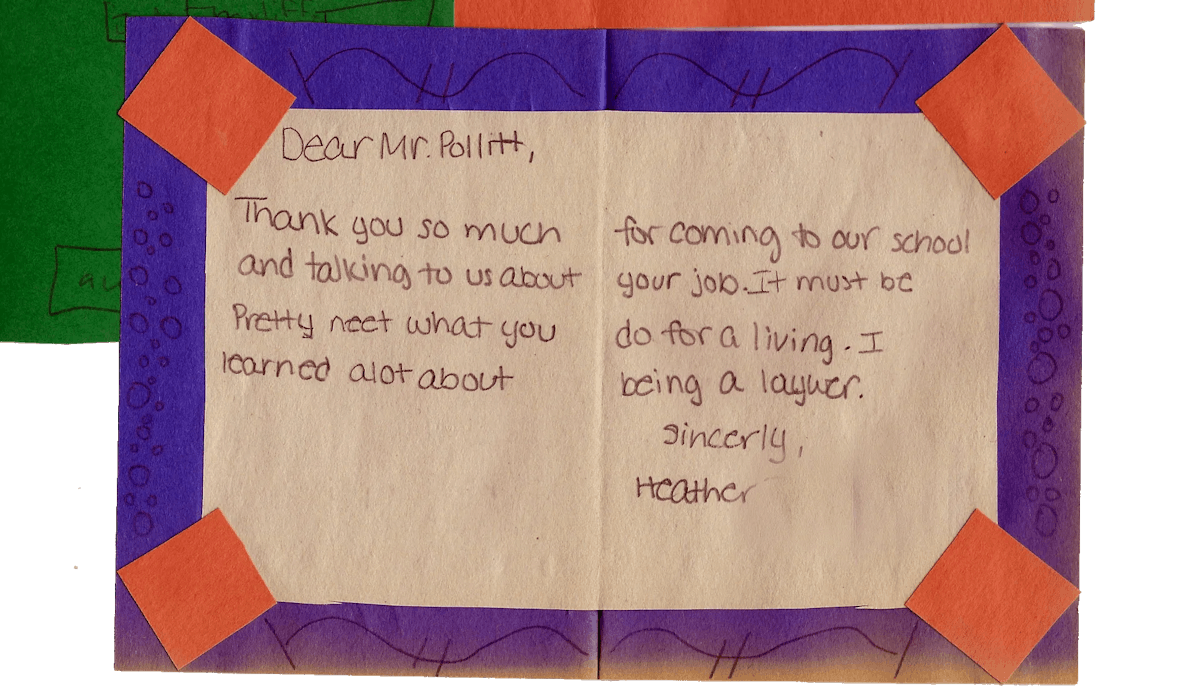 Dear Mr. Pollitt,
Thank you so much for coming to our school
and talking to us about your job. It must be
Pretty neet what you do for a living. I
learned alot about being a layuer.
Sincerly,
Heather